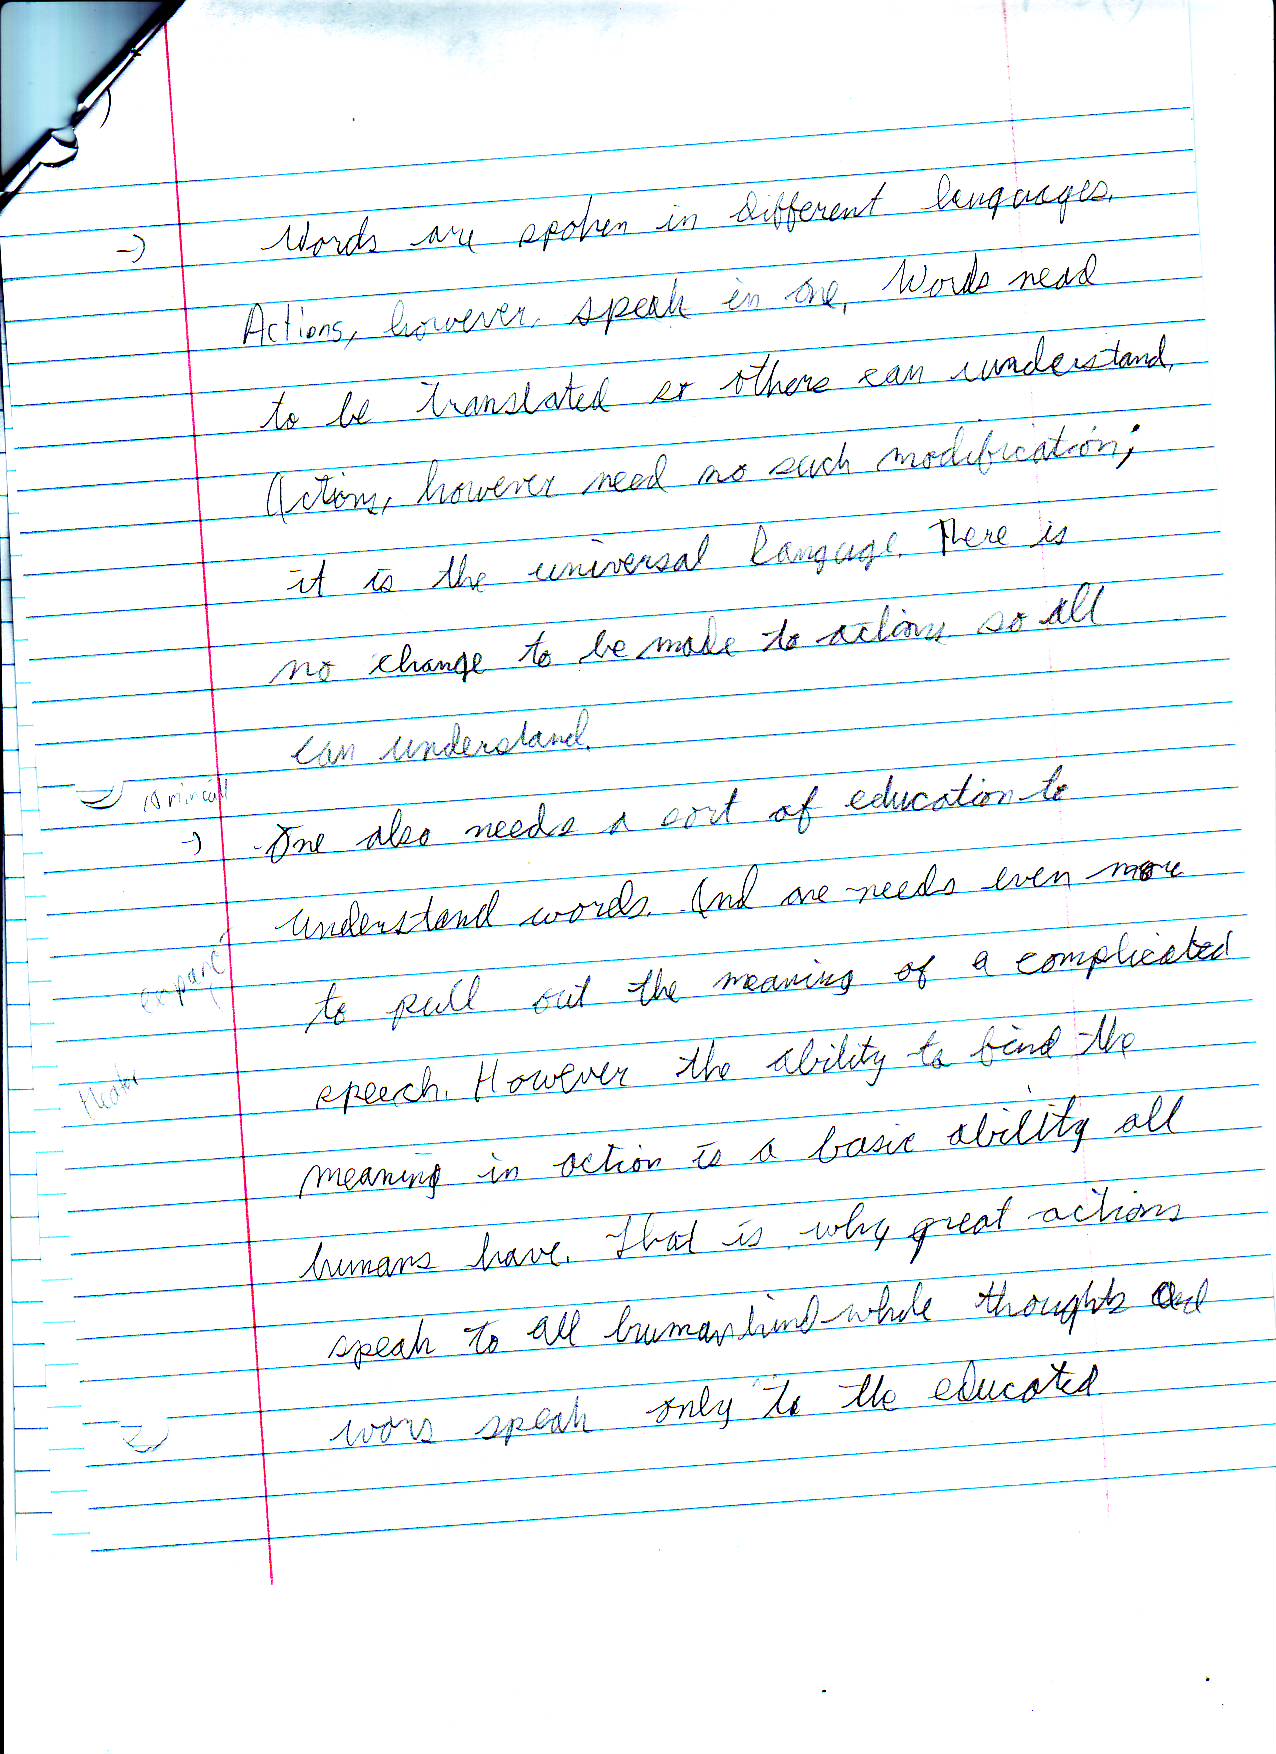 -) Words are spoken in different languages.
Actions, however, speak in one. Words need
to be translated so others can understand.
Actions, however need no such modification;
it is the universal langauge. There is
no change to be made to actions so all
can understand.
-) One also needs a sort of education to
understand words. And one needs even more
to pull out the meaning of a complicated
speech. However the ability to find the
meaning in action is a basic ability all
humans have. That is why great actions
speak to all humankind while thoughts and
wors speak only to the educated
expand